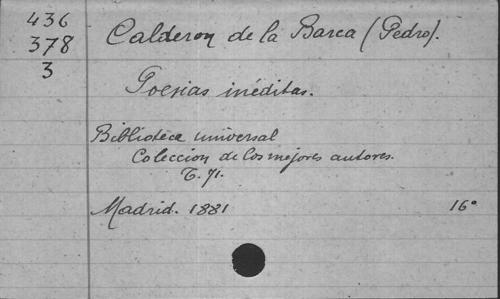 436
378
3
Calderon de la Barca (Pedro).
Poesias inéditas.
Biblioteca universal
Coleccion de los mejores autores.
T. 71.
Madrid. 1881 16°